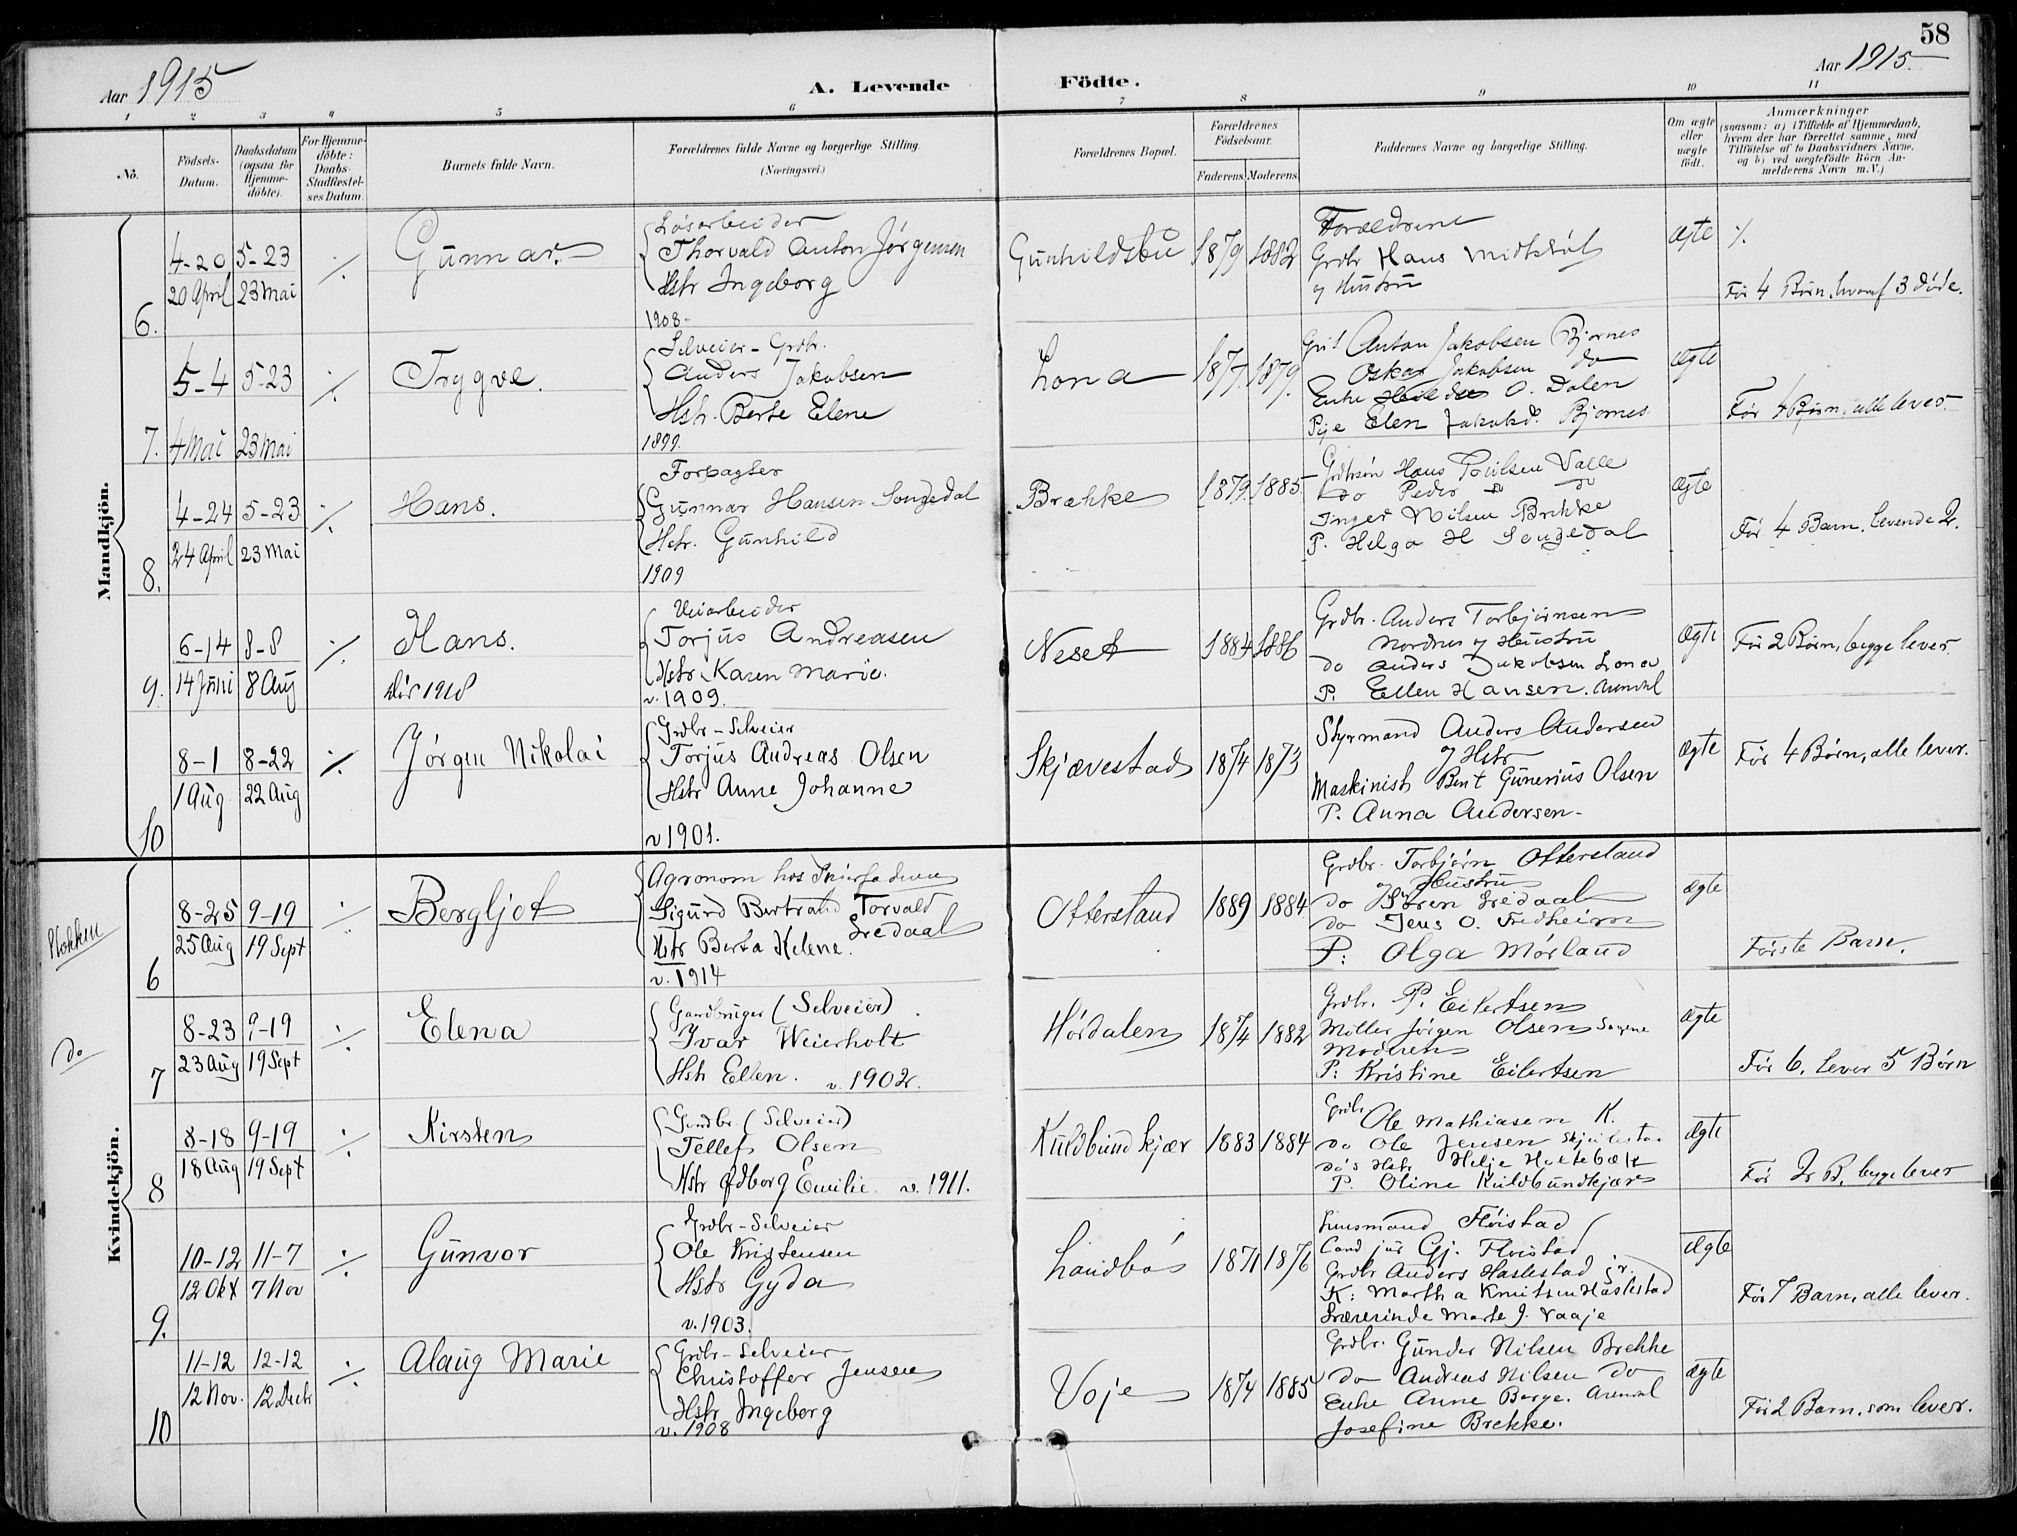 58
Aar 1915
A. Levende Födte.
Aar 1915
1 2 3 4 5 6 7 8 9 10 11
No.
Födsels-Datum.
Daabsdatum (ogsaa for Hjemme-döbte).
For Hjemme-döbte: Daabs-Stadfæstel-ses Datum.
Barnets fulde Navn.
Forældrenes fulde Navne og borgerlige Stilling.
(Næringsvei.)
Forældrenes Bopæl.
Forældrenes Födselsaar.
Faderens. Moderens.
Faddernes Navne og borgerlige Stilling.
Om ægte eller uægte födt.
Anmærkninger
(saasom: a) i Tilfælde af Hjemmedaab,
hvem der har forrettet samme, med
Tilföielse af to Daabsvidners Navne,
og b) ved uægtefödte Börn An-
melderens Navn m.V.)
Mandkjön.
6.
4-20 5-23
20 April 23 Mai
./.
Gunnar.
Løsarbeider
Thorvald Anton Jørgensen
Hstr Ingeborg
1908-
Gunhildsbu
1879 1882
Forældrene
Grdbr Hans
og Hustru
ægte
./.
Før 4 Børn, hvoraf 3 døde.
7.
5-4 5-23
4 Mai 23 Mai
./.
Trygve.
Selveier-Grdbr.
Anders Jakobsen
Hstr. Berte Elene
1899.
Lona
1877. 1879.
Anton Jakobsen Bjornes
Oskar Jakobsen do
Enke O. Dalen
Pige Elen Jakobsd. Bjornes
ægte
Før 4 Børn, alle lever.
8.
4-24 5-23
24 April 23 Mai
./.
Hans.
Forpagter
Gunnar Hansen Songedal
Hstr. Gunhild
1909
Brække
1879. 1885.
Hans Valle
do Peder do
Inger Nilsen Brekke
P. Helga H Songedal
ægte
Før 4 Barn, levende 2.
9.
6-14 8-8
14 Juni 8 Aug
./.
Hans.
dør 1918
Veiarbeider
Torjus Andreasen
Hstr Karen Marie.
v. 1909.
Neset
1884 1886
Grdbr. Anders Torbjørnsen
Nordnes og Hustru
do Anders Jakobsen Lona
P. Ellen Hansen. Arendal
ægte
Før 2 Børn, begge lever.
10
8-1 8-22
1 Aug 22 Aug
./.
Jørgen Nikolai
Grdbr-Selveier
Torjus Andreas Olsen
Hstr Anne Johanne
v 1901.
Skjævestad
1874 1873
Styrmand Anders Andersen
og Hstr
Maskinist Bent Gunerius Olsen
P. Anna Andersen.
ægte
Før 4 Børn, alle lever.
Kvindekjön.
6
8-25 9-19
25 Aug 19 Sept
./.
Bergljot
Agronom hos Svigerfaderen
Sigurd Bertrand Torvald
Sredaal
Hstr Berta Helene.
v. 1914
Otterstand
1889 1884
Grdbr. Torbjørn Otterstand
og Hustru
do Søren Sredaal
do Jens O. Fredheim
P: Olga Mørland
ægte
Første Barn.
do
7
8-23 9-19
23 Aug 19 Sept
./.
Elena
Gaardbruger (Selveier)
Ivar Weierholt
Hstr Ellen. v. 1902.
Hørdalen
1874 1882
Grdbr. P. Eilertsen
Møller Jørgen Olsen Songe
Moderen
P: Kristine Eilertsen
ægte
Før 6, lever 5 Børn
8
8-18 9-19
18 Aug 19 Sept
./.
Kirsten
Grdbr (Selveier)
Tellef Olsen
Hstr Ødborg Emilie. v. 1911.
Kuldbundkjær
1883 1884
Grdbr Ole Mathiasen K.
do Ole Jensen
do's Hstr Helje Holtebæk
P. Oline Kuldbundkjær
ægte
Før 2 B, begge lever
9.
10-12 11-7
12 Okt 7 Nov
./.
Gunvor
Grdbr-Selveier
Ole Kristensen
Hstr Gyda
v. 1903.
Landbø
1871 1876
Lensmand Fløistad
Cand jur Gj. Fløistad
Grdbr Anders Haslestad jr.
K: Martha Knutsen Haslestad
Lærerinde Marte J. Vaaje
ægte
Før 7 Barn, alle lever.
10
11-12 12-12
12 Nov. 12 Decbr
./.
Alaug Marie
Grdbr-Selveier
Christoffer Jensen
Hstr Ingeborg
v. 1908
Voje
1874 1885
Grdbr. Gunder Nilsen Brekke
do Andreas Nilsen do
Enke Anne Berge. Arendal
Josefine Brekke.
ægte
Før 2 Barn, som lever.